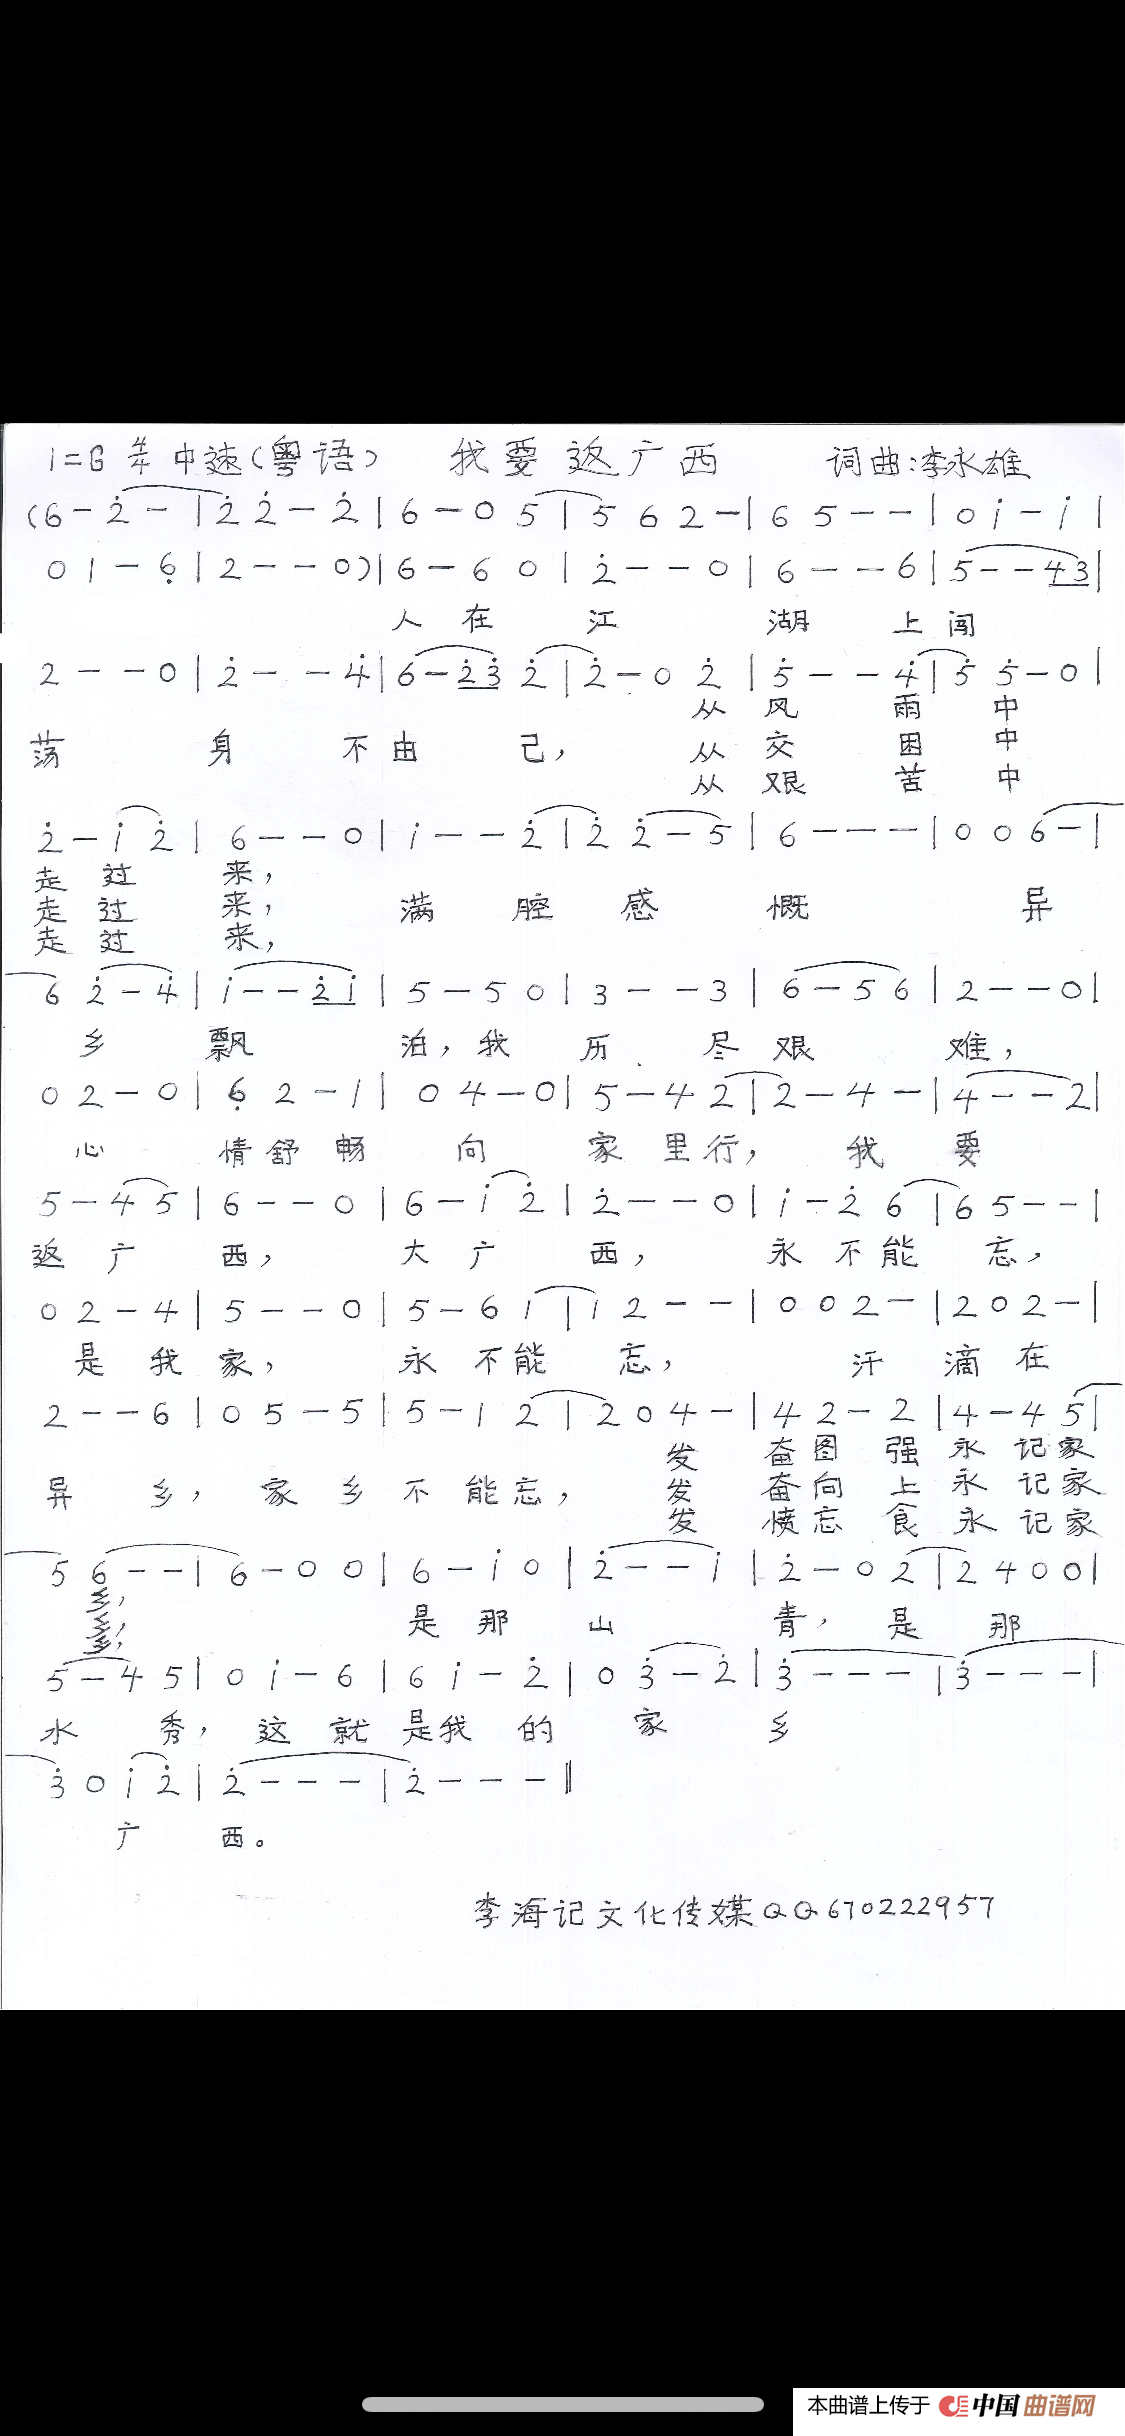 1=G 4/4 中速(粤语) 我要返广西 词曲:李永雄
(6 - 2̇ - | 2̇ 2̇ - 2̇ | 6 - 0 5 | 5 6 2 - | 6 5 - - | 0 i - i |
0 1 - 6̣ | 2 - - 0) | 6 - 6 0 | 2̇ - - 0 | 6 - - 6 | 5 - - 4 3 |
人 在 江 湖 上 闯
2 - - 0 | 2̇ - - 4̇ | 6 - 2̇ 3̇ 2̇ | 2̇ - 0 2̇ | 5̇ - - 4̇ | 5̇ 5̇ - 0 |
从 风 雨 中
荡 身 不 由 己, 从 交 困 中
从 艰 苦 中
2̇ - i 2̇ | 6 - - 0 | i - - 2̇ | 2̇ 2̇ - 5 | 6 - - - | 0 0 6 - |
走 过 来,
走 过 来, 满 腔 感 慨 异
走 过 来,
6 2̇ - 4̇ | i - - 2̇ i | 5 - 5 0 | 3 - - 3 | 6 - 5 6 | 2 - - 0 |
乡 飘 泊, 我 历 尽 艰 难,
0 2 - 0 | 6̣ 2 - 1 | 0 4 - 0 | 5 - 4 2 | 2 - 4 - | 4 - - 2 |
心 情 舒 畅 向 家 里 行, 我 要
5 - 4 5 | 6 - - 0 | 6 - i 2̇ | 2̇ - - 0 | i - 2̇ 6 | 6 5 - - |
返 广 西, 大 广 西, 永 不 能 忘,
0 2 - 4 | 5 - - 0 | 5 - 6 1 | 1 2 - - | 0 0 2 - | 2 0 2 - |
是 我 家, 永 不 能 忘, 汗 滴 在
2 - - 6 | 0 5 - 5 | 5 - 1 2 | 2 0 4 - | 4 2 - 2 | 4 - 4 5 |
发 奋 图 强 永 记 家
异 乡, 家 乡 不 能 忘, 发 奋 向 上 永 记 家
发 愤 忘 食 永 记 家
5 6 - - | 6 - 0 0 | 6 - i 0 | 2̇ - - i | 2̇ - 0 2 | 2 4 0 0 |
乡,
乡, 是 那 山 青, 是 那
乡,
5 - 4 5 | 0 i - 6 | 6 i - 2̇ | 0 3̇ - 2̇ | 3̇ - - - | 3̇ - - - |
水 秀, 这 就 是 我 的 家 乡
3̇ 0 i 2̇ | 2̇ - - - | 2̇ - - - ‖
广 西。
李海记文化传媒QQ670222957
本曲谱上传于 中国曲谱网